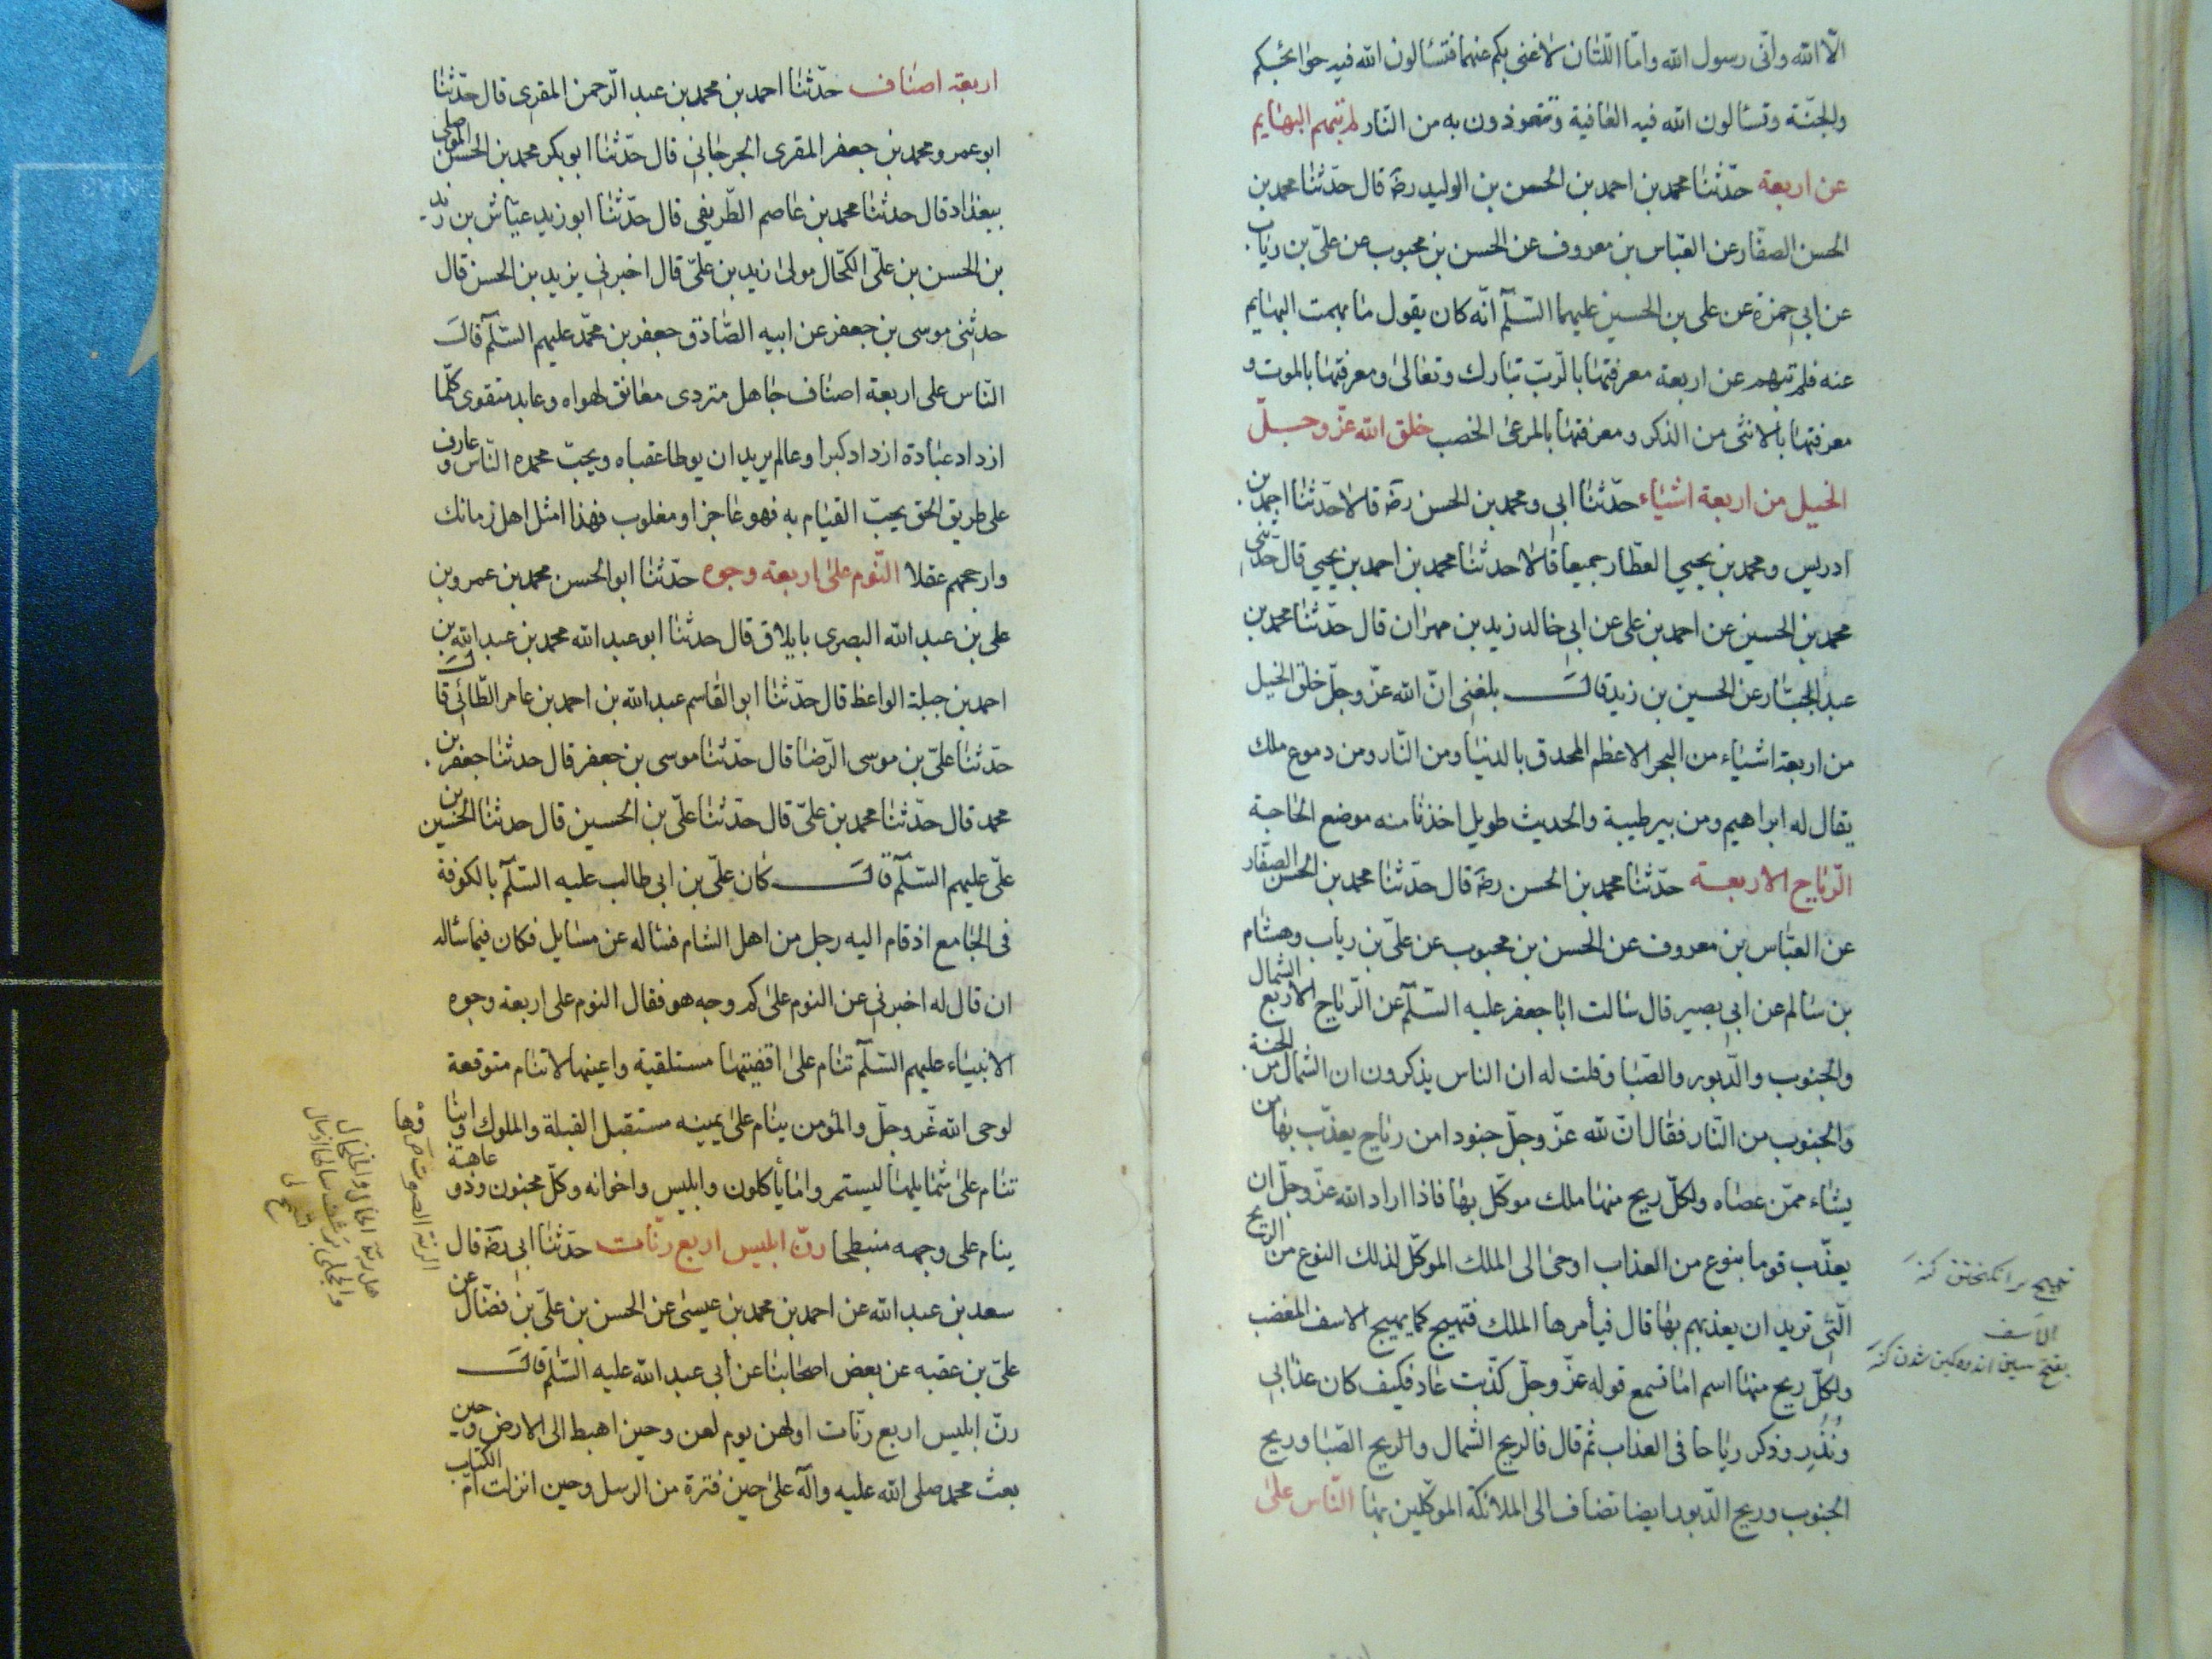 الّا الله وانّى رسول الله وامّا اللّتان لا غنى بكم عنهما فتسئالون الله فيه حوائجكم
والجنّة وتسئالون الله فيه العافية وتتعوذون به من النّار لم تبهم البهايم
عن اربعة حدّثنا محمد بن احمد بن الحسن بن الوليد رضه قال حدّثنا محمد بن
الحسن الصفّار عن العبّاس بن معروف عن الحسن بن محبوب عن علىّ بن رياب
عن ابى حمزة عن على بن الحسين عليهما السّلم انّه كان يقول ما بهمت البهايم
عنه فلم تبهم عن اربعة معرفتها بالربّ تبارك وتعالى ومعرفتها بالموت و
معرفتها بالانثى من الذكر ومعرفتها بالمرعى الخصب خلق الله عزّ وجلّ
الخيل من اربعة اشياء حدّثنا ابى ومحمد بن الحسن رضه قالا حدّثنا احمد بن
ادريس ومحمد بن يحيى العطّار جميعا قالا حدثنا محمد بن احمد بن يحيى قال حدّثنى
محمد بن الحسين عن احمد بن على عن ابى خالد زيد بن مهران قال حدّثنا محمد بن
عبد الجبّار عن الحسين بن زيد قال بلغنى انّ الله عزّ وجلّ خلق الخيل
من اربعة اشياء من البحر الاعظم المحدق بالدنيا ومن النّار ومن دموع ملك
يقال له ابراهيم ومن بير طيبة والحديث طويل اخذنا منه موضع الحاجة
الرّياح الاربعة حدّثنا محمد بن الحسن رضه قال حدّثنا محمد بن الحسن الصفّار
عن العبّاس بن معروف عن الحسن بن محبوب عن علىّ بن رياب وهشام
بن سالم عن ابى بصير قال سالت ابا جعفر عليه السّلم عن الرّياح الاربع الشمال
والجنوب والدّبور والصّبا وقلت له ان الناس يذكرون ان الشمال من الجنة
والجنوب من النّار فقال انّ لله عزّ وجلّ جنودا من رياح يعذّب بها من
يشاء ممّن عصاه ولكلّ ريح منها ملك موكّل بها فاذا اراد الله عزّ وجلّ ان
يعذّب قوما بنوع من العذاب اوحى الى الملك الموكّل لذلك النوع من الريح
الّتى تريد ان يعذبهم بها قال فيأمرها الملك فتهيج كما يهيج الاسف المغضب
ولكلّ ريح منها اسم اما تسمع قوله عزّ وجلّ كذّبت عاد فكيف كان عذابى
ونُذُر وذكر رياحا فى العذاب ثم قال فالريح الشمال والريح الصّبا وريح
الجنوب وريح الدّبور ايضا تضاف الى الملائكة الموكّلين بها النّاس على
الاسف
بفتح سين اندوهكين شدن كنز
اربعة اصناف حدّثنا احمد بن محمد بن عبد الرّحمن المقرى قال حدّثنا
ابو عمرو محمد بن جعفر المقرى الجرجانى قال حدّثنا ابو بكر محمد بن الحسن الموصلى
ببغداد قال حدثنا محمد بن عاصم الطّريفى قال حدّثنا ابو زيد عيّاش بن زيد
بن الحسن بن علىّ الكحّال مولى زيد بن علىّ قال اخبرنى يزيد بن الحسن قال
حدثنى موسى بن جعفر عن ابيه الصّادق جعفر بن محمّد عليهم السّلم قال
النّاس على اربعة اصناف جاهل متردى معانق لهواه وعابد متقوى كلّما
ازداد عبادة ازداد كبرا وعالم يريد ان يوطا عقباه ويحبّ محمدة النّاس وعارف
على طريق الحق يحبّ القيام به فهو عاجز او مغلوب فهذا امثل اهل زمانك
وارجحهم عقلا النّوم على اربعة وجوه حدّثنا ابو الحسن محمد بن عمرو بن
على بن عبد الله البصرى بايلاق قال حدثنا ابو عبد الله محمد بن عبد الله بن
احمد بن جبلة الواعظ قال حدّثنا ابو القاسم عبد الله بن احمد بن عامر الطّائى قال
حدّثنا علىّ بن موسى الرّضا قال حدّثنا موسى بن جعفر قال حدثنا جعفر بن
محمد قال حدّثنا محمد بن علىّ قال حدّثنا علىّ بن الحسين قال حدثنا الحسين بن
علىّ عليهم السّلم قال كان علىّ بن ابى طالب عليه السّلم بالكوفة
فى الجامع اذ قام اليه رجل من اهل الشام فسئاله عن مسايل فكان فيما سئاله
ان قال له اخبرنى عن النوم على كم وجه هو فقال النوم على اربعة وجوه
الانبياء عليهم السّلم تنام على اقفيتها مستلقية واعينها لا تنام متوقعة
لوحى الله عزّ وجلّ والمؤمن ينام على يمينه مستقبل القبلة والملوك وابنا
تنام على شمايلها ليستمروا ما يأكلون وابليس واخوانه وكلّ مجنون وذو عاهة
ينام على وجهه منبطحا رنّ ابليس اربع رنّات حدّثنا ابى رضه قال
سعد بن عبد الله عن احمد بن محمد بن عيسى عن الحسن بن علىّ بن فضّال عن
علىّ بن عقبه عن بعض اصحابنا عن أبى عبد الله عليه السّلم قال
رنّ ابليس اربع رنّات اولهن يوم لعن وحين اهبط الى الارض وحين
بعث محمد صلى الله عليه وآله على حين فترة من الرسل وحين انزلت امّ الكتاب
الرنة الصوت ص